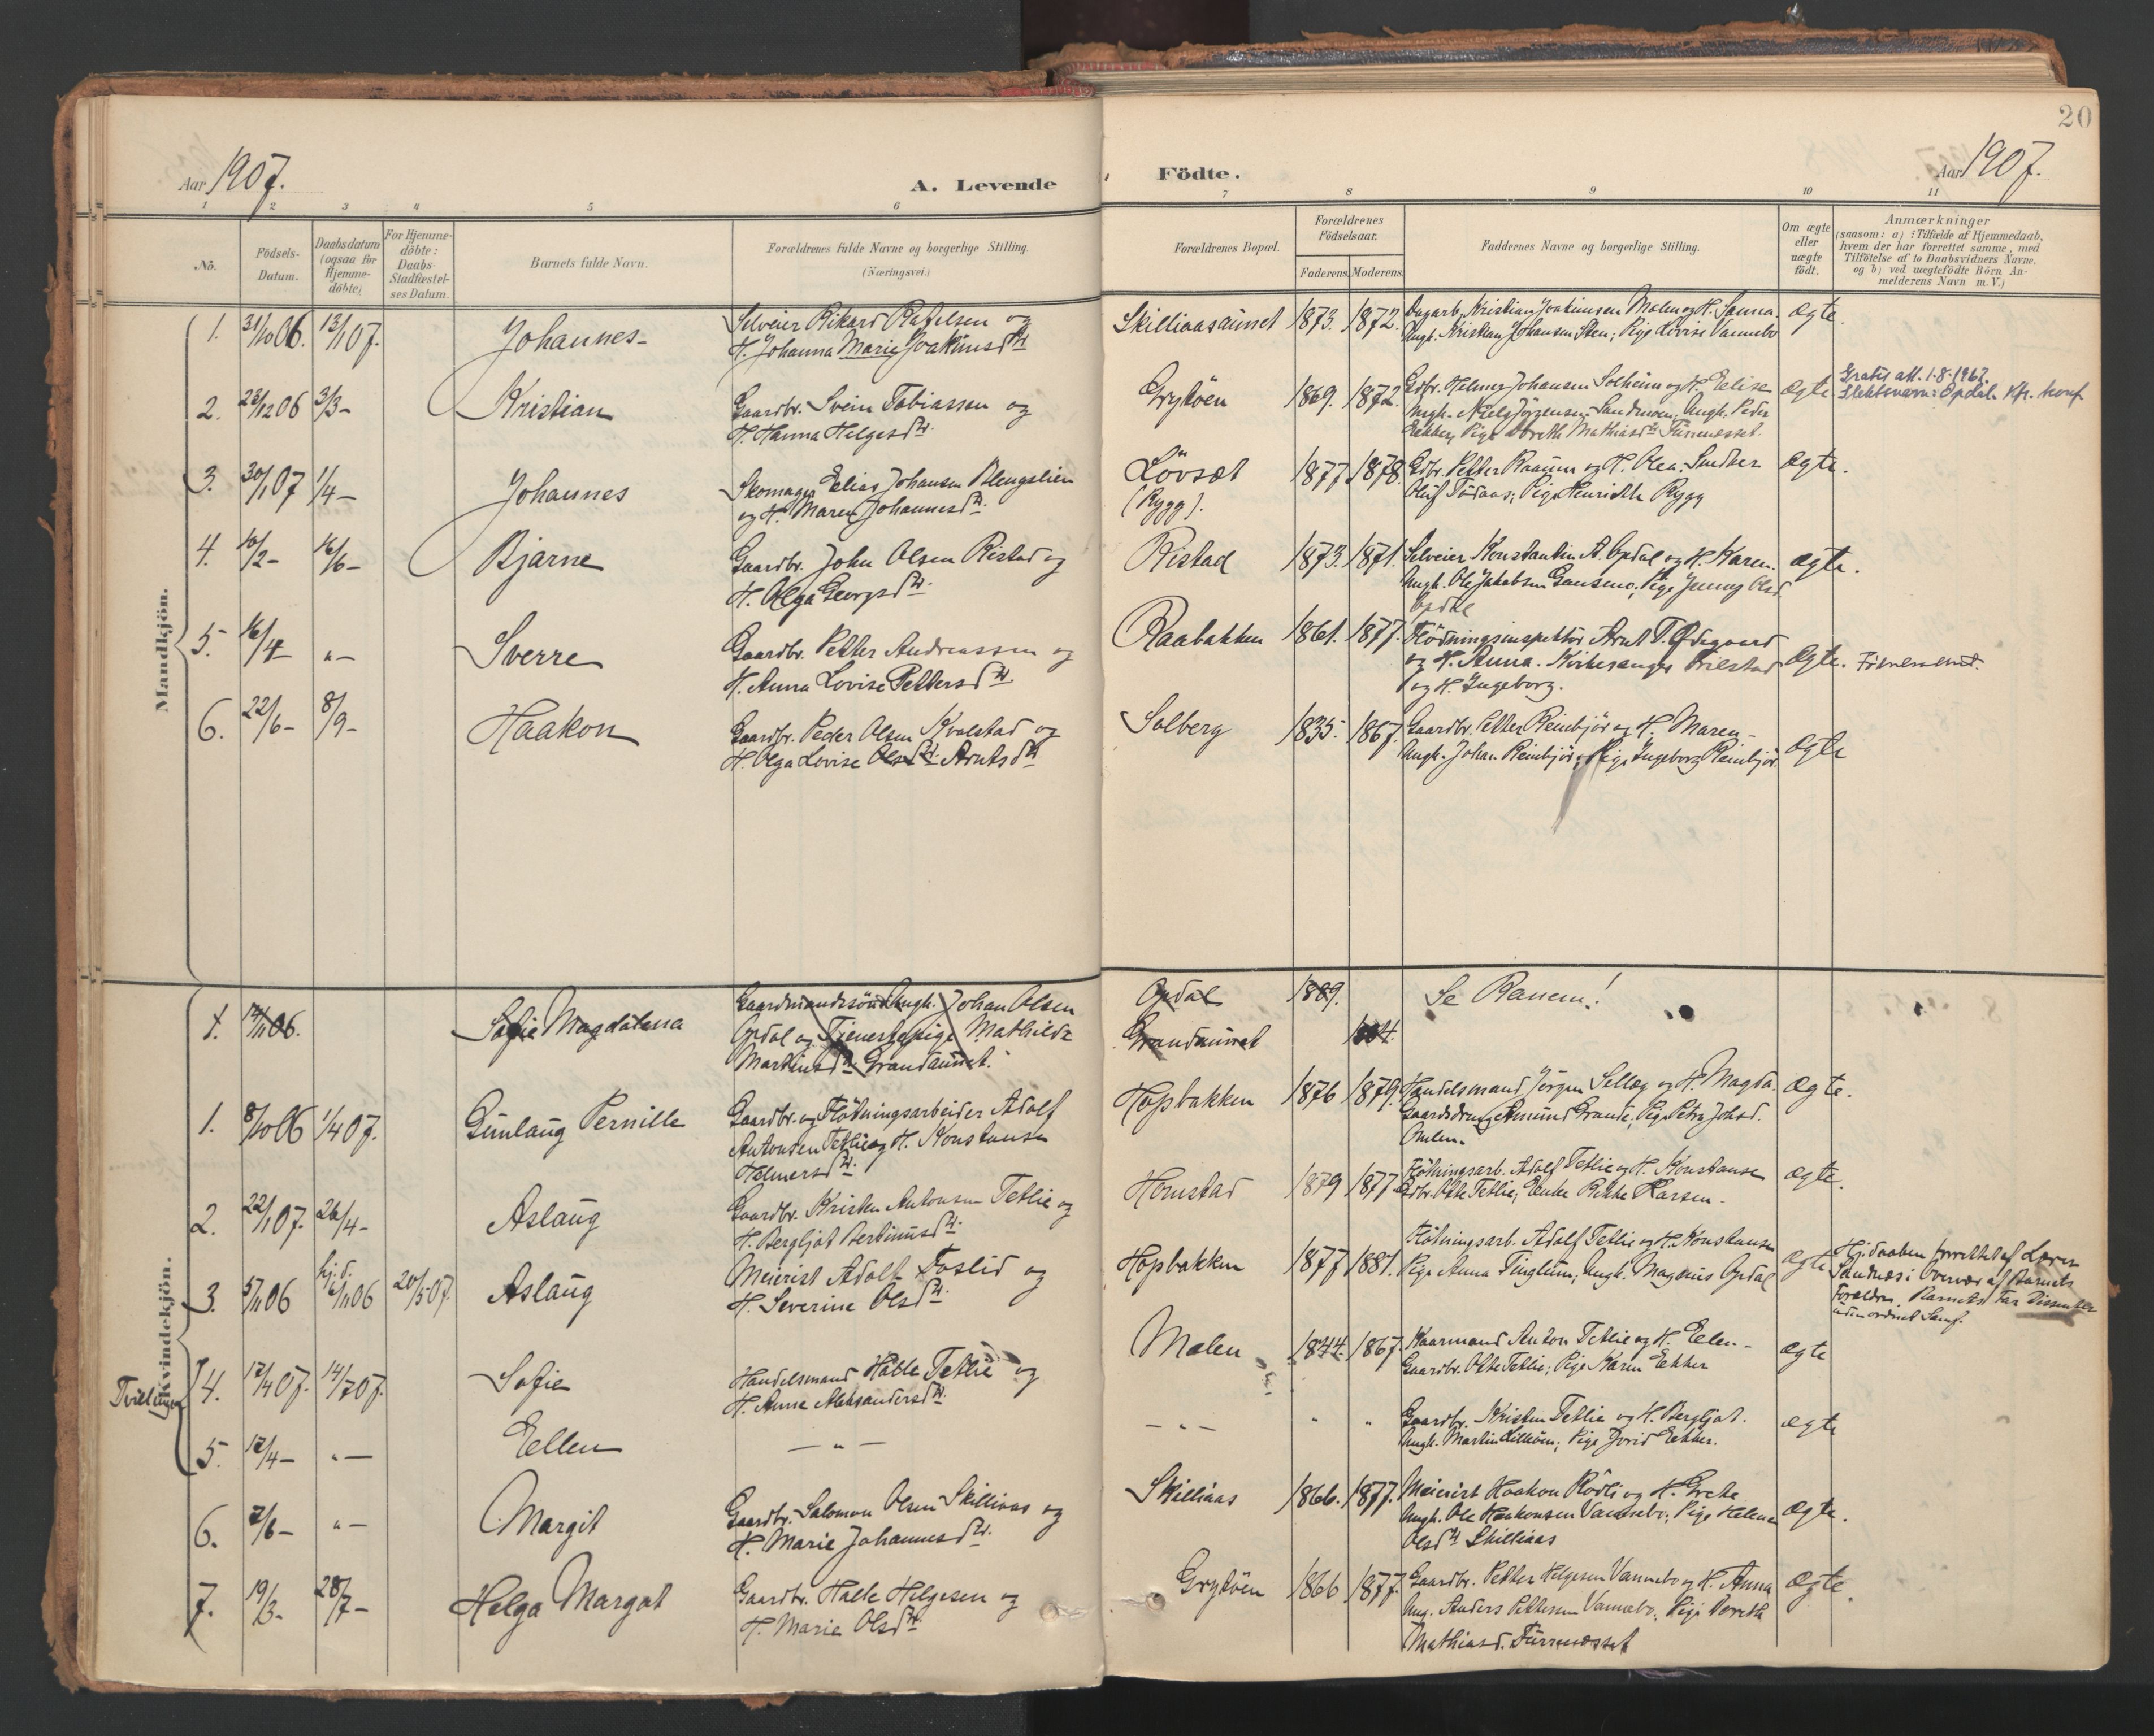 20
Aar 1907.
A. Levende
Födte.
Aar 1907.
1 2 3 4 5 6 7 8 9 10 11
No.
Födsels-
Datum.
Daabsdatum
(ogsaa for
Hjemme-
döbte)
For Hjemme-
döbte:
Daabs-
Stadfæstel-
ses Datum.
Barnets fulde Navn.
Forældrenes fulde Navne og borgerlige Stilling.
(Næringsvei.)
Forældrenes Bopæl.
Forældrenes
Födselsaar.
Faderens. Moderens.
Faddernes Navne og borgerlige Stilling.
Om ægte
eller
uægte
født.
Anmærkninger
(saasom: a) i Tilfælde af Hjemmedaab,
hvem der har forrettet samme, med
Tilföielse af to Daabsvidners Navne.
og b) ved uægtefödte Börn An-
melderens Navn m. V.)
Mandkjön.
1. 31/10 06. 13/1 07. Johannes
Selveier Rikard Rafelsen og
H. Johanna Marie Joakimsdtr
Skilliaasaunet 1873. 1872.
Dagarb. Kristian Joakimsen Malen og H. Sanna.
Ungk. Kristian Johansen Sten; Pige Lovise Vannebo
ægte.
2. 23/12 06 3/3 - Kristian
Gaardbr. Svein Tobiassen og
H. Hanna Helgesdtr.
Grytöen 1869. 1872.
Gdbr. Helmer Johansen Solheim og H. Elise
Ungk. Nils Jörgensen Sandmoen; Ungk. Peder
Ekker, Pige Doreth Mathiasdtr Furrenæsset.
ægte.
Gratis att. 1-8-1967
Slektsnavn: Opdal.
3. 30/1 07 1/4 - Johannes
Skomager Elias Johansen Blengslien
og H. Maren Johannesdtr.
Lövsæt
(Rygg).
1877 1878.
Gdbr. Petter Raaum og H. Olea. Snedker
Oluf Fördaas; Pige Henriette Rygg
ægte.
4. 10/2 - 16/6 - Bjarne
Gaardbr. John Olsen Ristad og
H. Olga Georgsdtr.
Ristad 1873. 1871.
Selveier Konstantin A. Opdal og H. Karen.
Ungk. Ole Jakobsen Gansmo; Pige Jenny Olsd.
Opdal
ægte.
5. 16/4 " - Sverre
Gaardbr. Petter Andreassen og
H. Anna Lovise Pettersdtr.
Raabakken 1861. 1877.
Flödningsinspektör Arnt T. Ødegaard
og H. Anna. Kirkesanger Fresstad
og H. Ingeborg.
ægte.
6. 22/6 - 8/9 - Haakon
Gaardbr. Peder Olsen Kvalstad og
H. Olga Lovise Olsdtr. Arntsdtr
Solberg 1835. 1867.
Gaardbr. Petter Reinbjör og H. Maren -
Ungk. Johan Reinbjör; Pige Ingeborg Reinbjör
ægte
Kvindekjön.
1. 14/11 06. Sofie Magdalena
Gaardmandssön Ungk. Johan Olsen
Opdal og Tjenestepige Mathilde
Martinsdtr. Grandaunet.
Opdal 1889.
Grandaunet 1884.
Se Ranem!
1. 8/10 06 1/4 07. Gunlaug Pernille
Gaardbr. og Flötningsarbeider Adolf
Antonsen Tetlie og H. Konstanse
Helmersdtr.
Hopsbakken 1876 1879.
Handelsmand Jörgen Sellæg og H. Magda.
Gaardsdreng Amund Grande, Pige Petra Johsd.
Omlien.
ægte.
2. 22/1 07. 26/4 - Aslaug
Gaardbr. Kristen Antonsen Tetlie og
H. Bergljot Bertinusdtr.
Homstad 1879 1877
Flötningsarb. Adolf Tetlie og H. Konstanse
Gdbr. Otte Tetlie; Enke Rikke Karsen -
ægte.
3. 5/11 06 hj.d. 6/11 06 20/5 07. Aslaug
Meierist Adolf Foslid og
H. Severine Olsdtr.
Hopsbakken 1877 1881.
Flötningsarb. Adolf Tetlie og H. Konstanse
Pige Anna Tinglum; Ungk. Magnus Opdal
ægte
Hj.daaben forrettet af Loren
Sandnæs i Overvær af Barnets
Forældre. Barnets Far Dissenter
uden ordnet Samf.
Tvillinger
4. 12/4 07. 14/7 07. Sofie
Handelsmand Halle Tetlie og
H. Anna Aleksandersdtr.
Malen 1844. 1867.
Kaarmand Anton Tetlie og H. Elen -
Gaardbr. Otte Tetlie; Pige Karen Ekker
ægte
5. 12/4 - " - Ellen
- " -
- " - " "
Gaardbr. Kristen Tetlie og H. Bergljot.
Ungk. Martin Lilleöen; Pige Jorid Ekker.
ægte
6. 2/6 - " - Margit
Gaardbr. Salomon Olsen Skilliaas og
H. Marie Johannesdtr.
Skilliaas 1866. 1877.
Meierist Haakon Rödli og H. Grete
Ungk. Ole Haakonsen Vannebo; Pige Helene
Olsdtr Skilliaas
ægte.
7. 19/3 - 28/7 - Helga Margot
Gaardbr. Halle Helgesen og
H. Marie Olsdtr
Grytöen 1866 1877.
Gaardbr. Petter Helgesen Vannebo og H. Anna
Ung. Anders Pettersen Vannebo; Pige Doreth
Mathiasd. Furrenæsset
ægte.